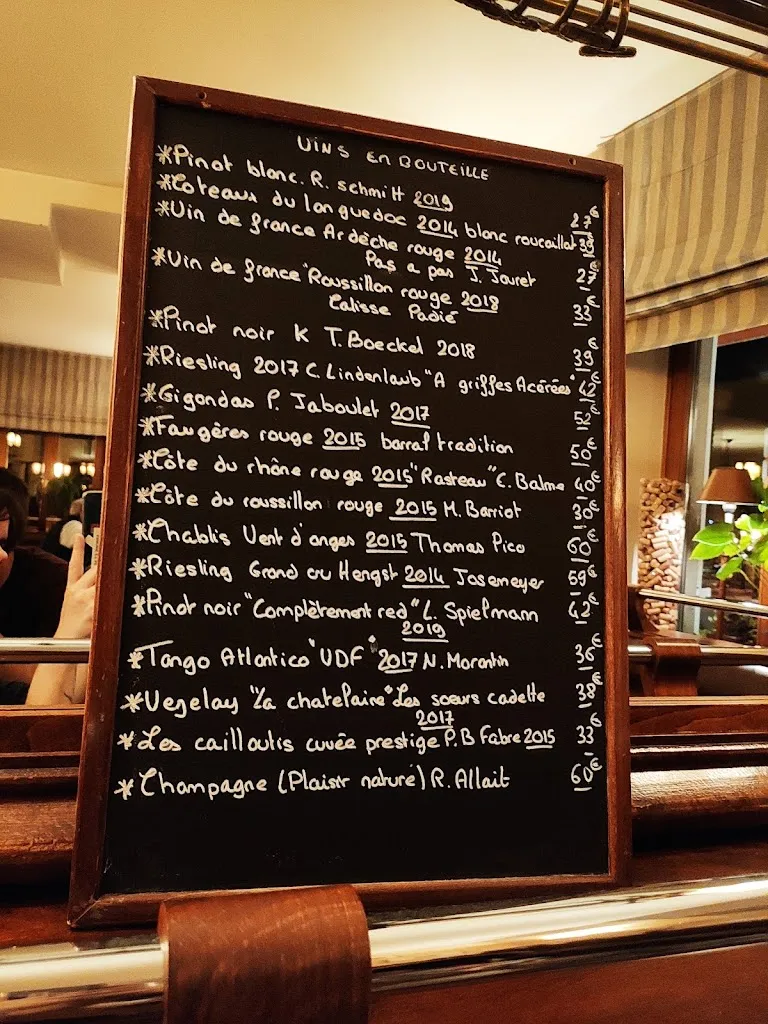 VINS EN BOUTEILLE
*Pinot blanc. R. schmitt 2019 27€
*Coteaux du languedoc 2014 blanc roucaillat 39€
*Vin de france Ardèche rouge 2014
Pas a pas J. Jouret 27€
*Vin de france "Roussillon rouge 2018
Calisse Padié 33€
*Pinot noir K T.Boeckel 2018 39€
*Riesling 2017 C. Lindenlaub "A griffes Acérées" 42€
*Gigondas P. Jaboulet 2017 52€
*Faugères rouge 2015 barral tradition 50€
*Côte du rhône rouge 2015 "Rasteau" C. Balme 40€
*Côte du roussillon rouge 2015 M. Barriot 30€
*Chablis Vent d'anges 2015 Thomas Pico 60€
*Riesling Grand cru Hengst 2014 Josemeyer 59€
*Pinot noir "Complètement red" L. Spielmann 42€
2019
*Tango Atlantico "VDF" 2017 N. Morantin 36€
*Vezelay "la chatelaine" Les soeurs cadette 38€
2017
*Les cailloutis cuvée prestige P.B Fabre 2015 33€
*Champagne (Plaisir naturé) R. Allait 60€